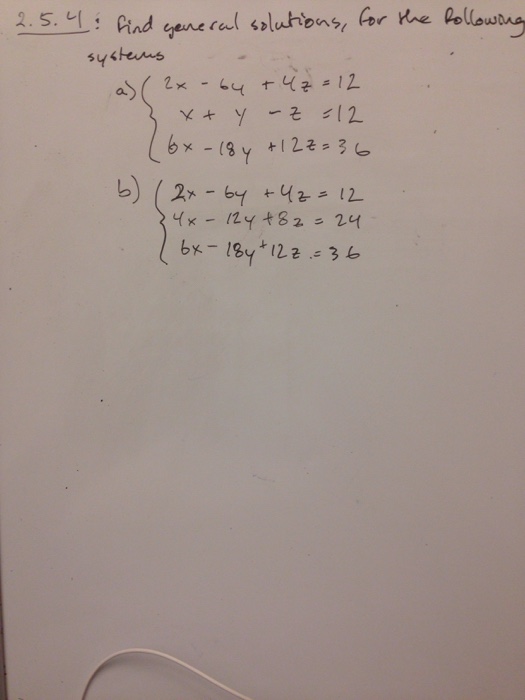 2.5.4: find general solutions, for the following
systems
a) { 2x - 6y + 4z = 12
x + y - z = 12
6x - 18y + 12z = 36
b) { 2x - 6y + 4z = 12
4x - 12y + 8z = 24
6x - 18y + 12z = 36